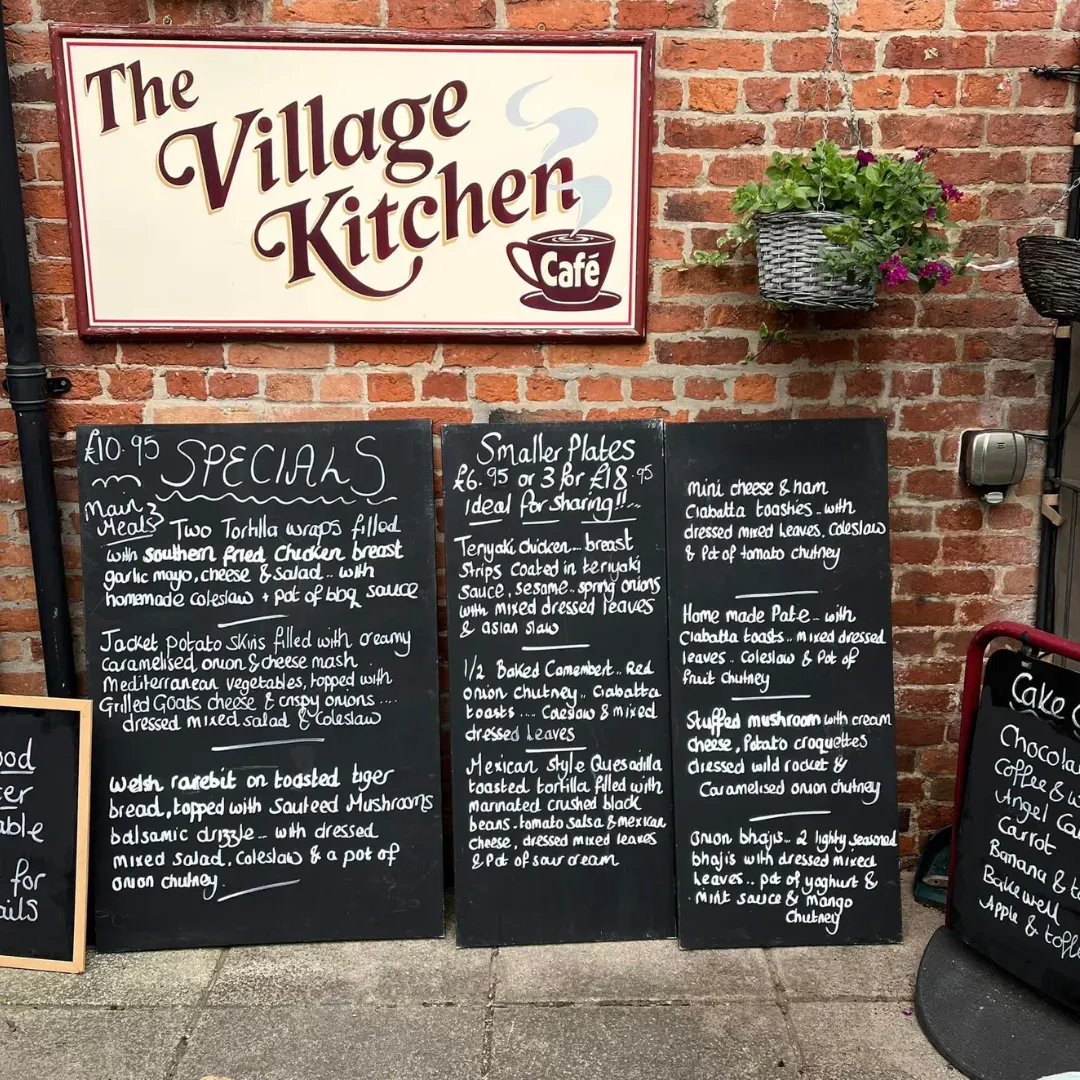 The
Village
Kitchen
Café
£10.95 SPECIALS
Main
Meals
Two Tortilla wraps filled
with southern fried chicken breast
garlic mayo, cheese & salad.. with
homemade coleslaw + pot of bbq sauce
Jacket potato skins filled with creamy
caramelised onion & cheese mash.
Mediterranean vegetables, topped with
Grilled Goats cheese & crispy onions....
dressed mixed salad & coleslaw
Welsh rarebit on toasted tiger
bread, topped with sauteed Mushrooms
balsamic drizzle... with dressed
mixed salad, coleslaw & a pot of
onion chutney.
Smaller Plates
£6.95 or 3 for £18.95
Ideal for sharing!!...
Teriyaki chicken... breast
strips coated in teriyaki
sauce, sesame.. spring onions
with mixed dressed leaves
& asian slaw
1/2 Baked Camembert.. Red
onion chutney.. Ciabatta
toasts.... Coleslaw & mixed
dressed leaves
Mexican style Quesadilla
toasted tortilla filled with
marinated crushed black
beans. tomato salsa & mexican
cheese, dressed mixed leaves
& Pot of sour cream
Mini cheese & ham
Ciabatta toasties.. with
dressed mixed leaves, coleslaw
& Pot of tomato chutney
Home made Pate.. with
Ciabatta toasts.. mixed dressed
leaves.. Coleslaw & Pot of
fruit chutney
Stuffed mushroom with cream
cheese, Potato croquettes
dressed wild rocket &
Caramelised onion chutney
Onion bhajis.. 2 lightly seasoned
bhajis with dressed mixed
leaves.. pot of yoghurt &
mint sauce & mango
Chutney
for
Cake
Coffee &
Angel
Carrot
Banana &
Bakewell
Apple &